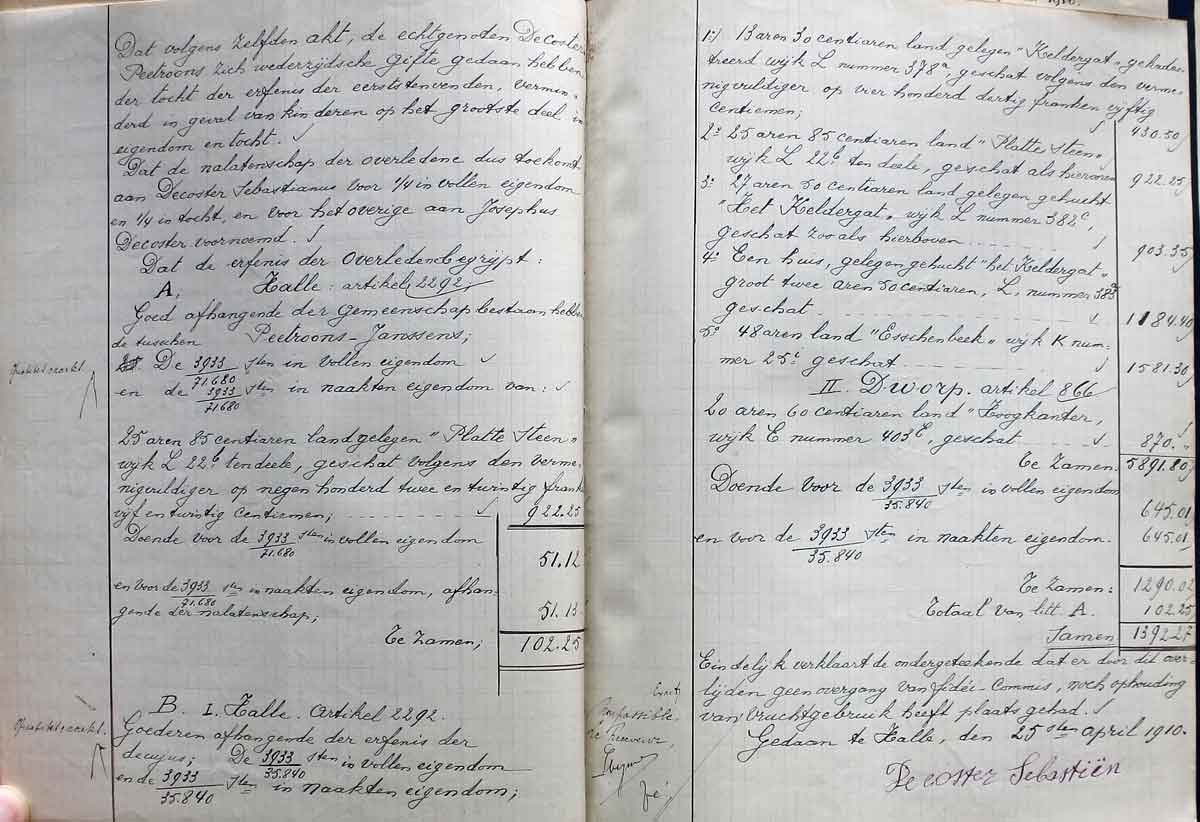 Dat volgens zelfden akt, de echtgenoten Decoster
Peetroons zich wederzijdsche gifte gedaan hebben
der tocht der erfenis der eerststervenden, vermin-
derd in geval van kinderen op het grootste deel in
eigendom en tocht.
Dat de nalatenschap der overledene dus toekomt
aan Decoster Sebastianus voor 1/4 in vollen eigendom
en 1/4 in tocht, en voor het overige aan Josephus
Decoster voornoemd.
Dat de erfenis der Overledene begrijpt:
A. Halle: artikel 2292,
Goed afhangende der Gemeenschap bestaan hebben
de tusschen Peetroons-Janssens;
De 3933/71.680 sten in vollen eigendom
en de 3933/71.680 sten in naakten eigendom van:
25 aren 85 centiaren land gelegen "Platte Steen"
wijk L 22b ten deele, geschat volgens den verme-
nigvuldiger op negen honderd twee en twintig frank
vijf en twintig centiemen; 922.25
Doende voor de 3933/71.680 sten in vollen eigendom 51.12
en voor de 3933/71.680 sten in naakten eigendom, afhan-
gende der nalatenschap; 51.13
Te Zamen; 102.25
B. I. Halle. Artikel 2292.
Goederen afhangende der erfenis der
decujus; De 3933/35.840 sten in vollen eigendom
en de 3933/35.840 sten in naakten eigendom;
1º) 13 aren 30 centiaren land gelegen "Keldergat" gekadas-
treerd wijk L nummer 378a, geschat volgens den verme-
nigvuldiger op vier honderd dertig franken vijftig
centiemen; 430.50
2º 25 aren 85 centiaren land "Platte steen"
wijk L 22b ten deele, geschat als hierboven 922.25
3º 27 aren 50 centiaren land gelegen gehucht
"Het Keldergat" wijk L nummer 382c,
geschat zoo als hierboven 903.35
4º Een huis, gelegen gehucht "het Keldergat"
groot twee aren 50 centiaren, L. nummer
geschat 1184.40
5º 48 aren land "Esschenbeek" wijk K num-
mer 25c geschat 1581.30
II. Dworp. artikel 866
20 aren 60 centiaren land "Hoogkanter,
wijk E nummer 403E, geschat 870.-
Te Zamen. 5891.80
Doende voor de 3933/35.840 sten in vollen eigendom 645.01
en voor de 3933/35.840 sten in naakten eigendom. 645.01
Te Zamen: 1290.02
Totaal van litt. A. 102.25
Samen 1392.27
Eindelijk verklaart de ondergeteekende dat er door dit over-
lijden geen overgang van fidei-commis, noch ophouding
van vruchtgebruik heeft plaats gehad.
Gedaan te Halle, den 25 sten april 1910.
Decoster Sebastiën